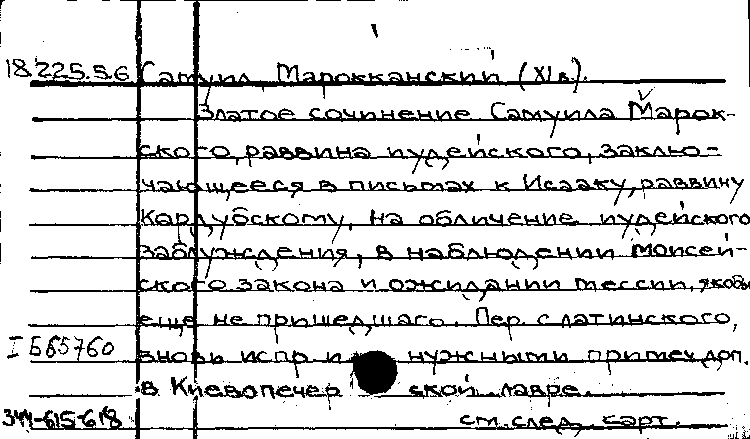 18.225.5.6 Самуил, Марокканский (XI в.).
Златое сочинение Самуила Марок-
ского, раввина иудейского, заклю-
чающееся в письмах к Исааку, раввину
Кардубскому, на обличение иудейского
заблуждения, в наблюдении Моисей-
ского закона и ожидании мессии, якобы
еще не пришедшаго. Пер. с латинского,
I Б65760 вновь испр и нужными примеч доп.
в Киевопечер ской лавре.
344-615-618 см. след. карт.